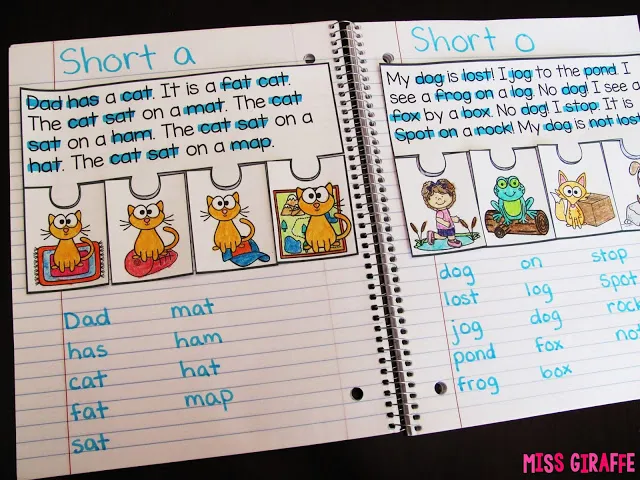 Short a
Dad has a cat. It is a fat cat.
The cat sat on a mat. The cat
sat on a ham. The cat sat on a
hat. The cat sat on a map.
Dad mat
has ham
cat hat
fat map
sat
Short o
My dog is lost! I jog to the pond. I
see a frog on a log. No dog! I see a
fox by a box. No dog! I stop. It is
Spot on a rock! My dog is not lost
dog on stop
lost log Spot
jog dog
pond fox
frog box
MISS GIRAFFE